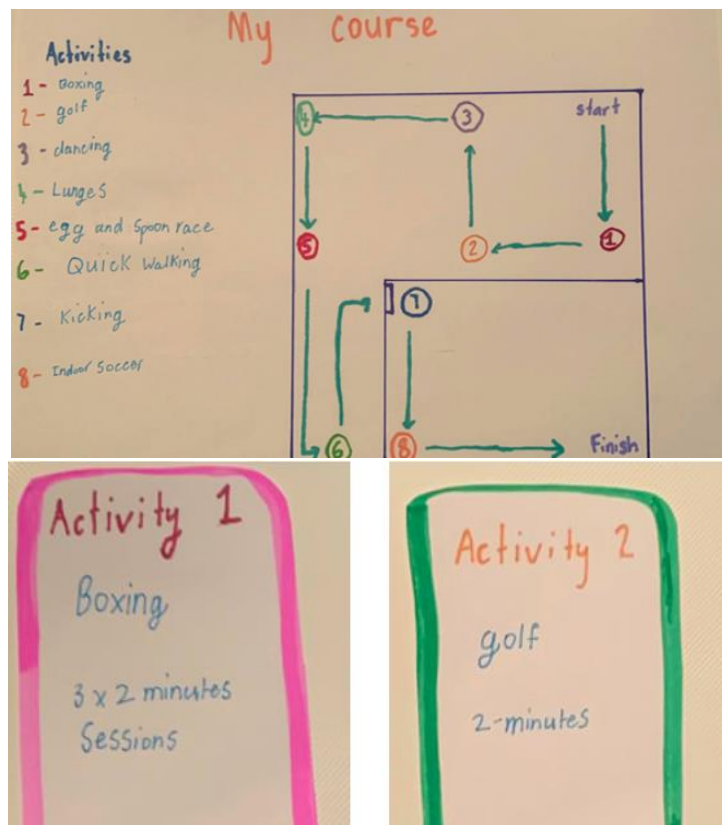 My course
Activities
1 - Boxing
2 - golf
3 - dancing
4 - Lunges
5 - egg and spoon race
6 - Quick walking
7 - Kicking
8 - Indoor Soccer
4
3
start
5
2
1
7
6
8
Finish
Activity 1
Boxing
3 x 2 minutes
Sessions
Activity 2
golf
2-minutes